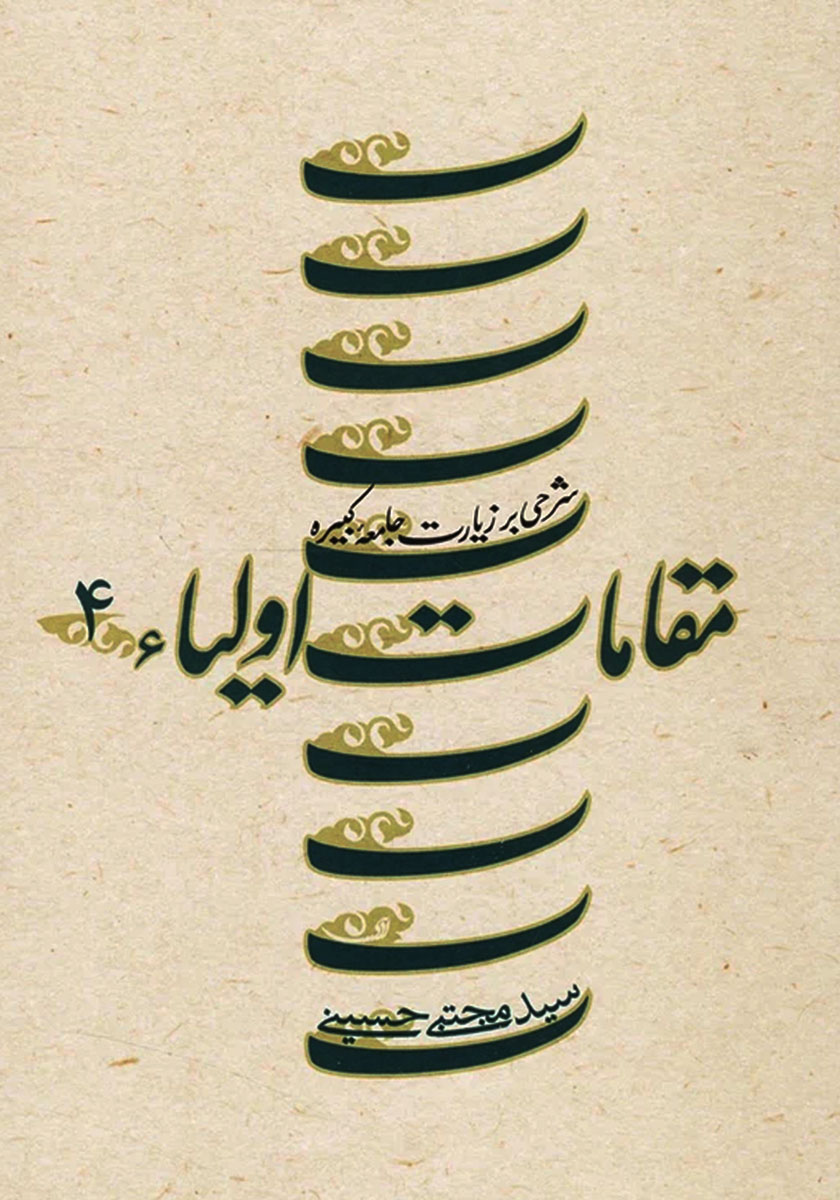 شرحی بر زیارت جامعهٔ کبیره
مقامات اولیاء ۴
سید مجتبی حسینی